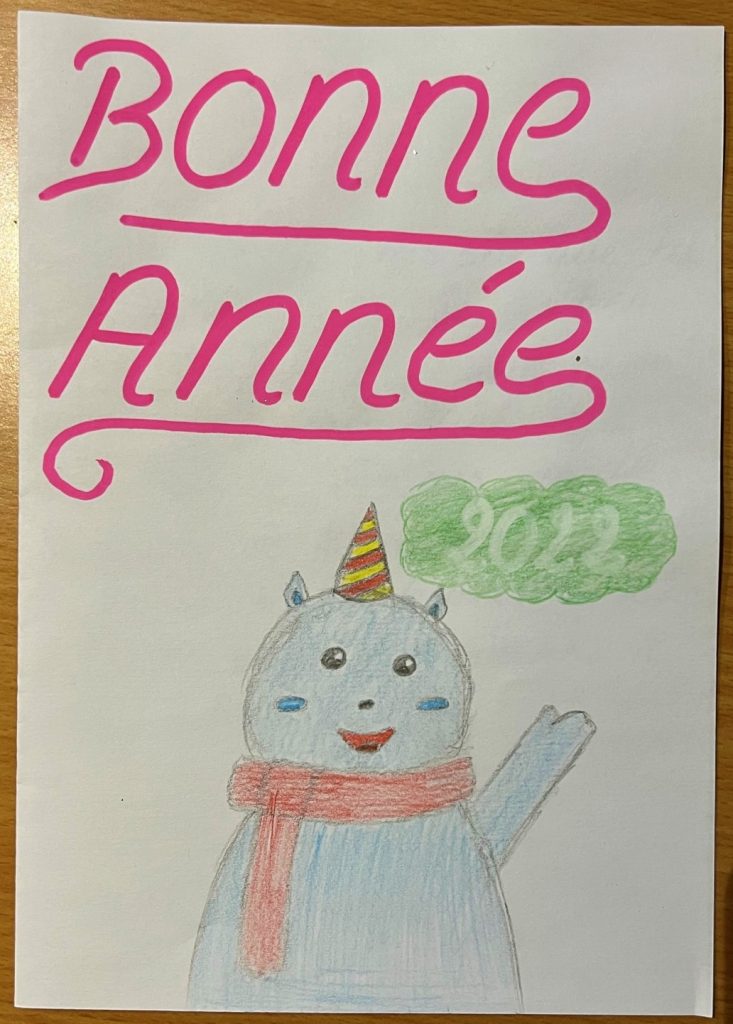 Bonne
Année
2022